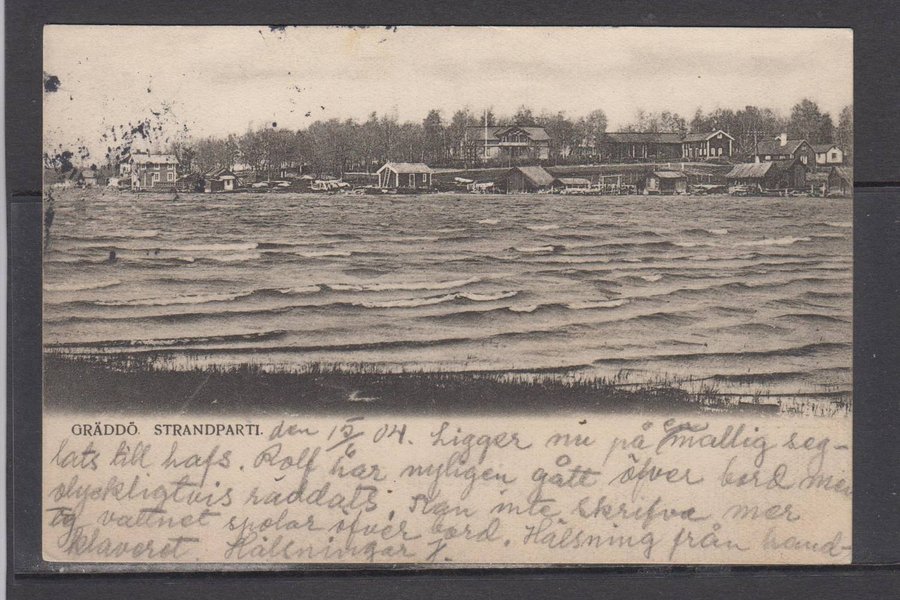 GRÄDDÖ. STRANDPARTI. den 15/ 04. Ligger nu på smallig seg-
lats till hafs. Rolf har nyligen gått öfver bord men
olyckligtvis räddats. Kan inte skrifva mer
ty vattnet spolar öfver bord. Hälsning från hand-
klaveret. Hälsningar J.